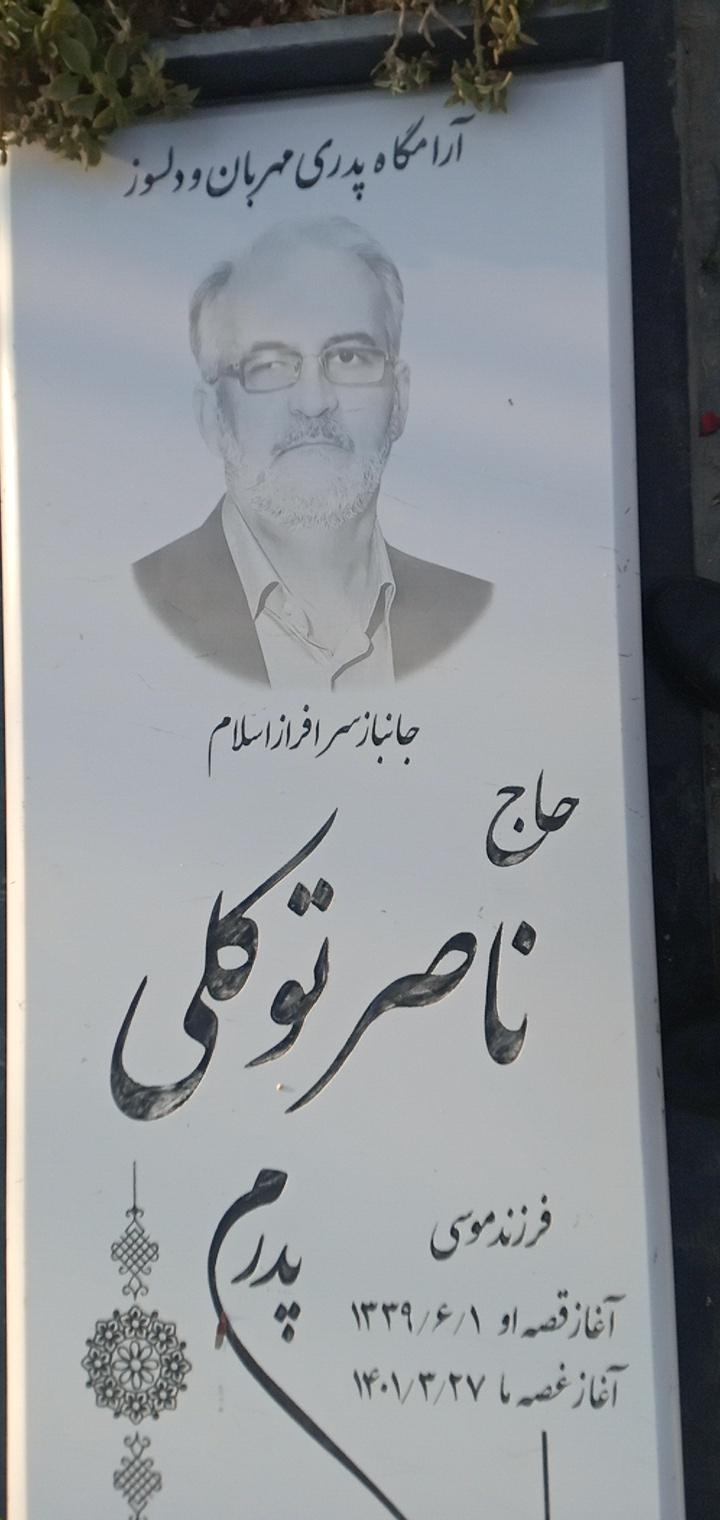 آرامگاه پدری مهربان و دلسوز
جانباز سرافراز اسلام
حاج
ناصر توکلی
فرزند موسی
پدرم
آغاز قصه او ۱۳۳۹/۶/۱
آغاز غصه ما ۱۴۰۱/۳/۲۷